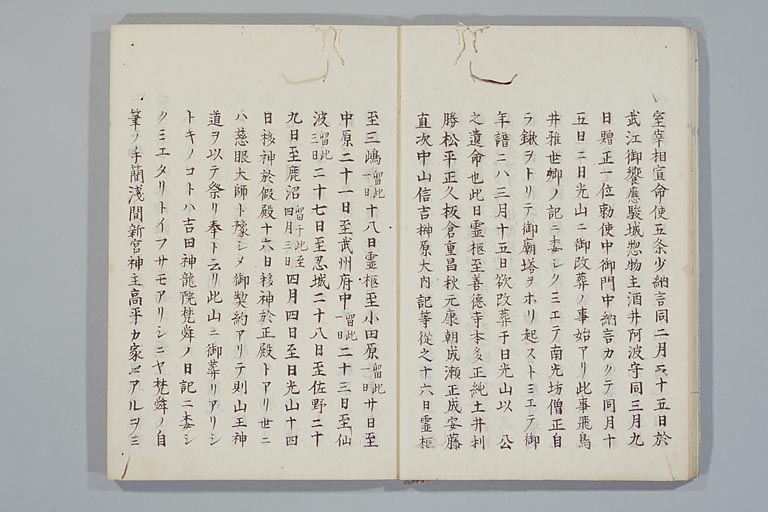 室宰相宣命使五条少納言同二月二十五日於
武江御饗應駿城惣物主酒井阿波守同三月九
日贈正一位勅使中御門中納言カクテ同月十
五日ニ日光山ニ御改葬ノ事始アリ此事飛鳥
井雅世卿ノ記ニ委シクミエテ南光坊僧正自
ラ鍬ヲトリテ御廟塔ヲホリ起ストミエテ御
年譜ニハ三月十五日欲改葬于日光山以 公
之遺命也此日霊柩至善德寺本多正純土井利
勝松平正久板倉重昌秋元康朝成瀬正成安藤
直次中山信吉榊原大内記等從之十六日霊柩
至三嶋留此一日十八日霊柩至小田原留此一日廿日至
中原二十一日至武州府中留此一日二十三日至仙
波留此三日二十七日至忍城二十八日至佐野二十
九日至鹿沼留于此至四月三日四月四日至日光山十四
日移神於假殿十六日移神於正殿トアリ世ニ
ハ慈眼大師ト豫シメ御契約アリテ則山王神
道ヲ以テ祭リ奉ト云リ此山ニ御葬リアリシ
トキノコトハ吉田神龍院梵舜ノ日記ニ委シ
クミエタリトイフサモアリシニヤ梵舜ノ自
筆ノ手簡浅間新宮神主高平カ家ニアルヲミ